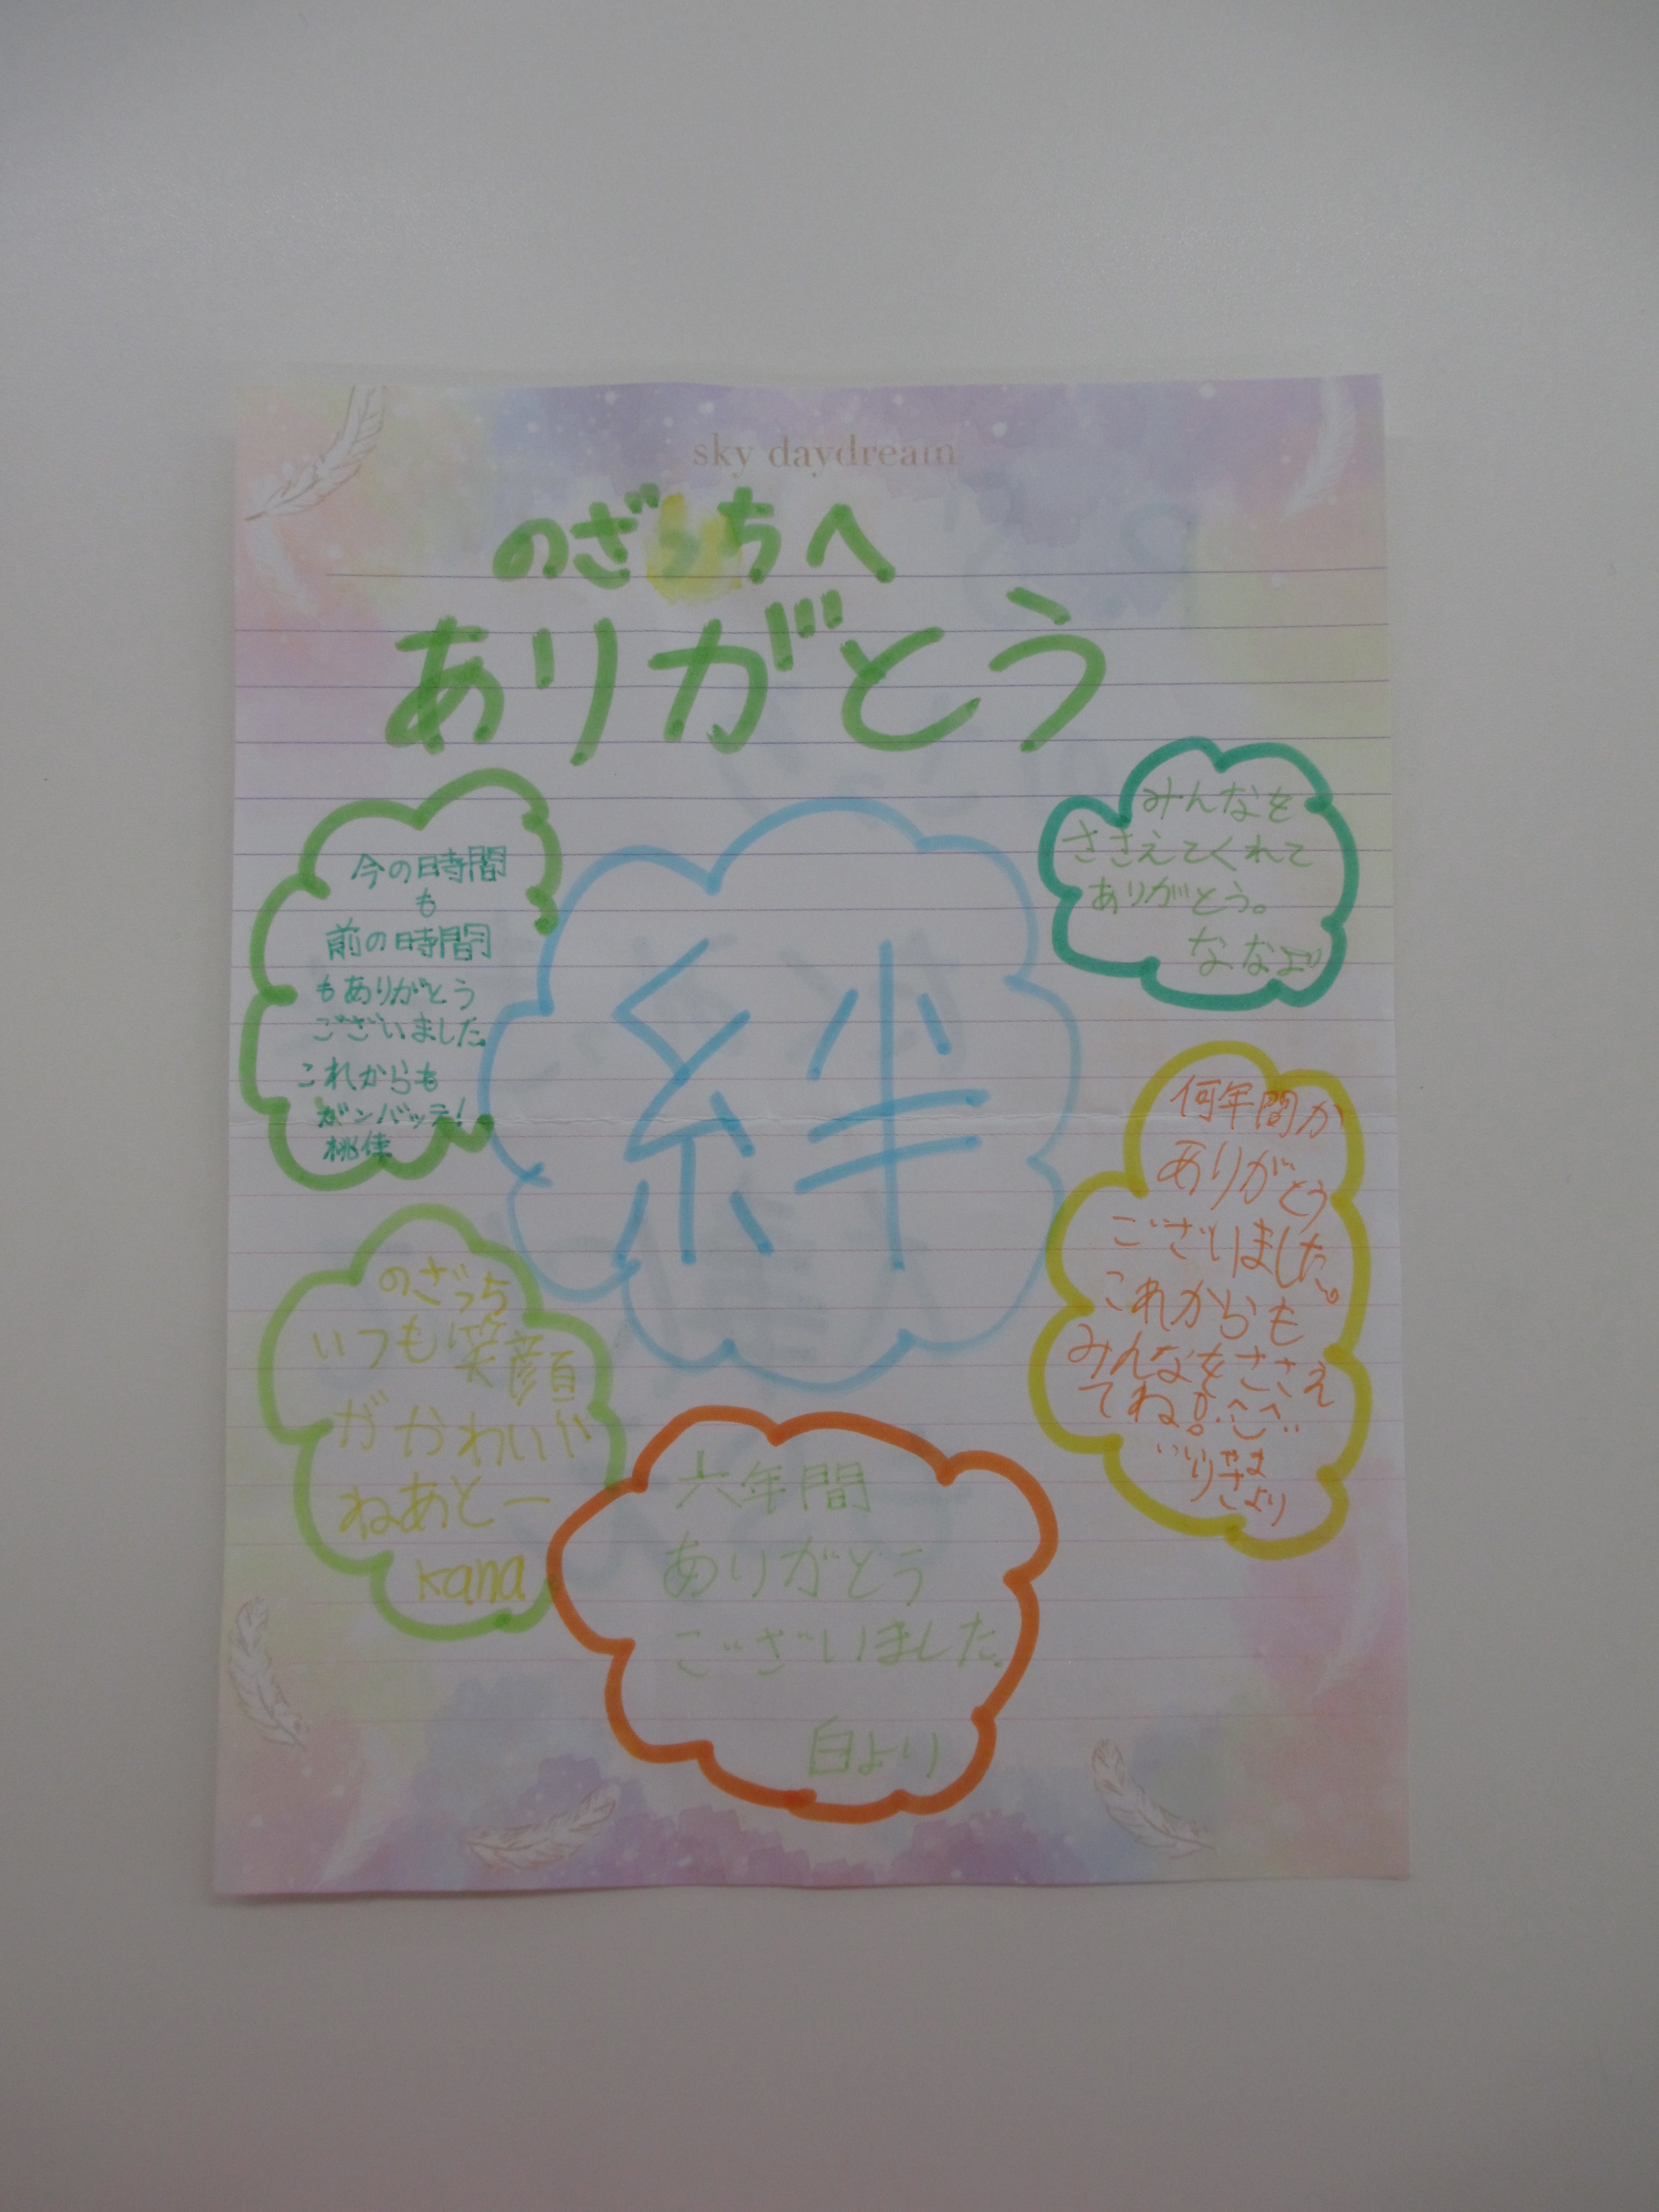 sky daydream
のざっちへ
ありがとう
今の時間
も
前の時間
もありがとう
ございました。
これからも
ガンバッテ!
桃佳
絆
みんなを
ささえてくれて
ありがとう。
ななより
何年間か
ありがとう
ございました。
これからも
みんなをささえ
てね!
りさより
のざっち
いつも笑顔
がかわいい
ねあとー
kana
六年間
ありがとう
ございました。
白より